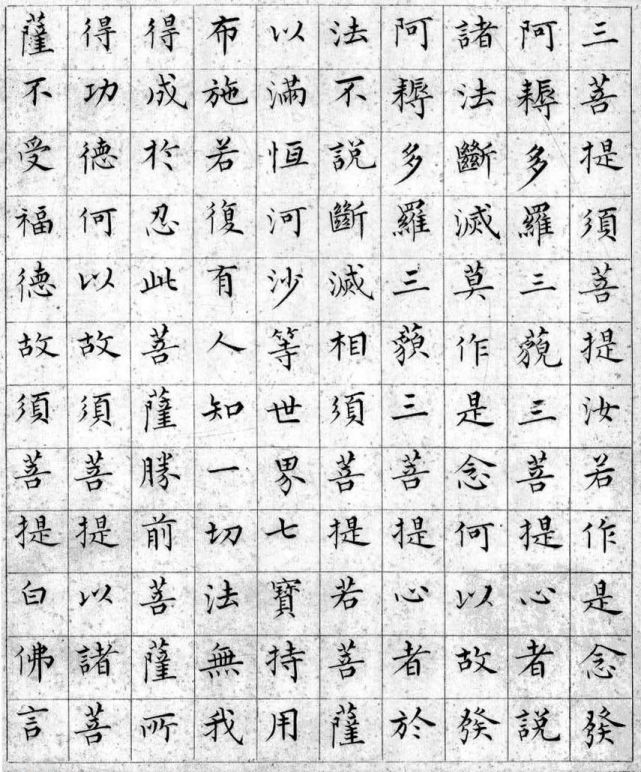 三菩提須菩提汝若作是念發
阿耨多羅三藐三菩提心者說
諸法斷滅莫作是念何以故發
阿耨多羅三藐三菩提心者於
法不說斷滅相須菩提若菩薩
以滿恒河沙等世界七寶持用
布施若復有人知一切法無我
得成於忍此菩薩勝前菩薩所
得功德何以故須菩提以諸菩
薩不受福德故須菩提白佛言